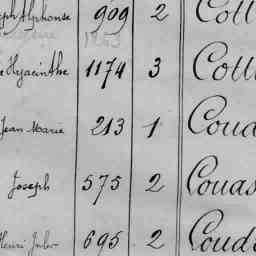 ph Alphonse 909 2 Coll
1263
e Hyacinthe 1174 3 Coll
Jean Marie 213 1 Coud
Joseph 575 2 Couas
Henri Jules 695 2 Coudr